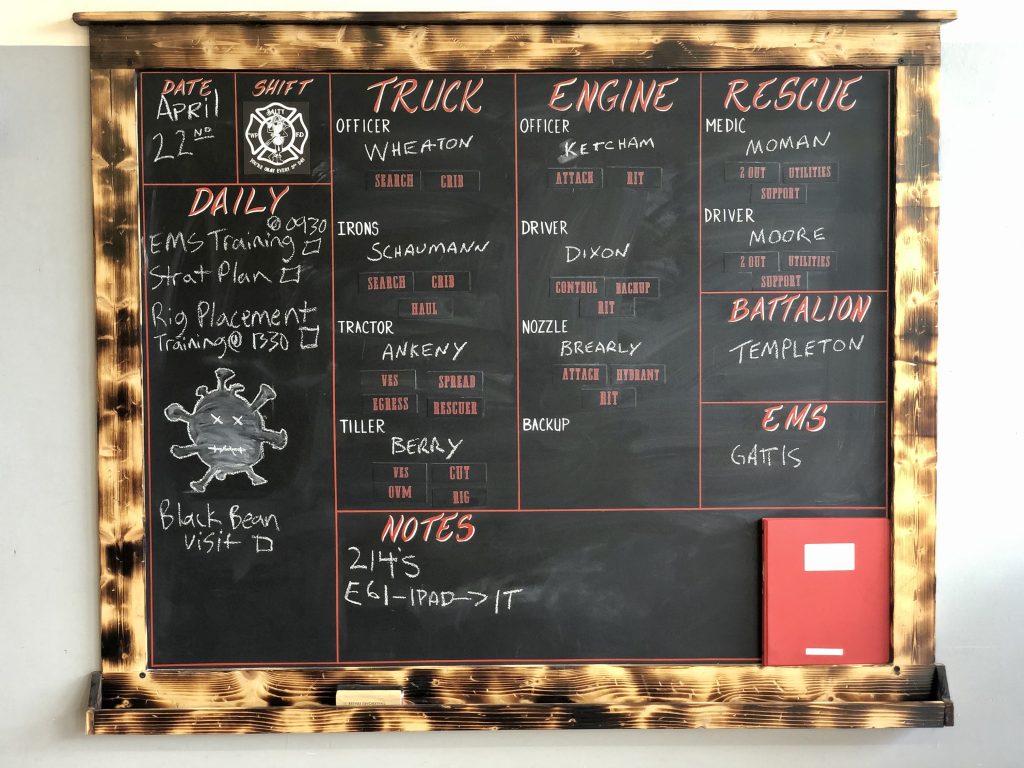 DATE
April
22ND
SHIFT
SALTY
FD
DAILY
@ 0930
EMS Training
Strat Plan
Rig Placement
Training @ 1330
Black Bean
visit
TRUCK
OFFICER
WHEATON
SEARCH CRIB
IRONS
SCHAUMANN
SEARCH CRIB
HAUL
TRACTOR
ANKENY
VES SPREAD
EGRESS RESCUER
TILLER
BERRY
VES CUT
OVM RIG
ENGINE
OFFICER
KETCHAM
ATTACK RIT
DRIVER
DIXON
CONTROL BACKUP
RIT
NOZZLE
BREARLY
ATTACK HYDRANT
RIT
BACKUP
RESCUE
MEDIC
MOMAN
2 OUT UTILITIES
SUPPORT
DRIVER
MOORE
2 OUT UTILITIES
SUPPORT
BATTALION
TEMPLETON
EMS
GATTIS
NOTES
214's
E61-IPAD->IT